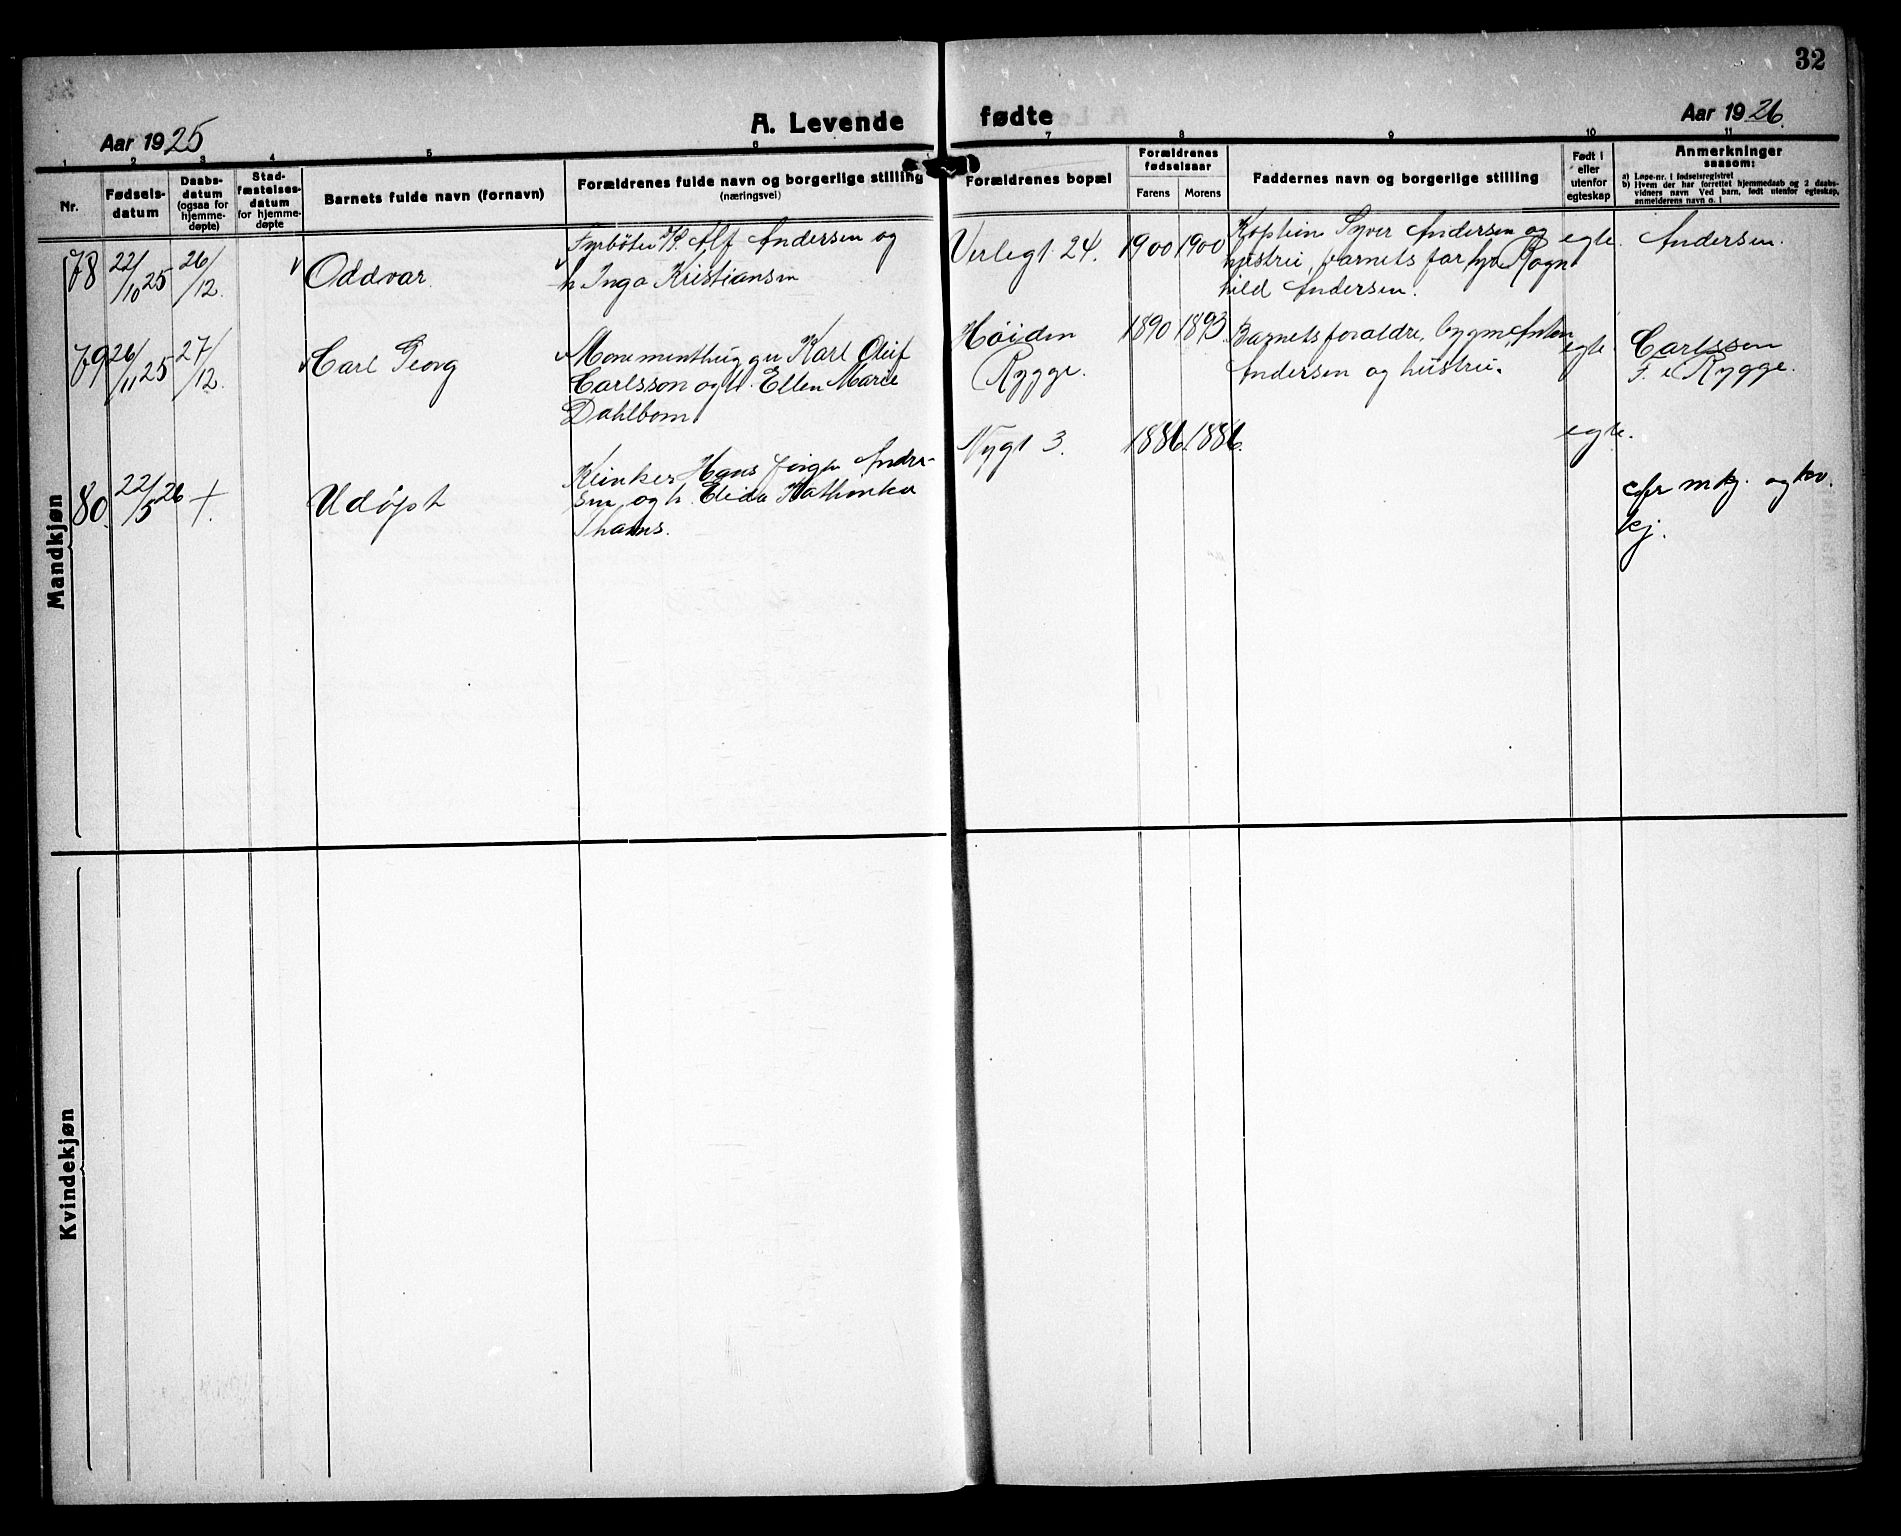 32
Aar 1925
A. Levende fødte
Aar 1926
1 2 3 4 5 6 7 8 9 10 11
Nr.
Fødselsdatum
Daabsdatum (ogsaa for hjemmedøpte)
Stadfæstelsesdatum for hjemmedøpte
Barnets fulde navn (fornavn)
Forældrenes fulde navn og borgerlige stilling (næringsvei)
Forældrenes bopæl
Forældrenes fødselsaar
Farens Morens
Faddernes navn og borgerlige stilling
Født i eller utenfor egteskap
Anmerkninger saasom:
a) Løpe-nr. i fødselsregistret
b) Hvem der har forrettet hjemmedaab og 2 daabsvidners navn Ved barn, født utenfor egteskap, anmelderens navn o. l
Mandkjøn
78 22/10 25 26/12. Oddvar.
Fyrbøter Alf Andersen og
h Inga Kristiansen
Verlegt. 24. 1900 1900
Kaptein Syver Andersen og
hustru, barnets far, Ragn
hild Andersen.
egte. Andersen.
79 26/11 25 27/12. Carl Georg
Monumenthugger Karl Oluf
Carlsson og h. Ellen Marie
Dahlbom
Høiden
Rygge.
1890 1893
Barnets foraldre, bygm. Anton
Andersen og hustru.
egte
Carlssen
F. i Rygge.
80. 22/5 26 +. Udøpt
Hans Jørgen Andre-
sen og h. Elida Kathinka
Thams.
Nygt 3. 1886. 1886.
egte.
cfr mkj. og kv.
kj.
Kvindekjøn